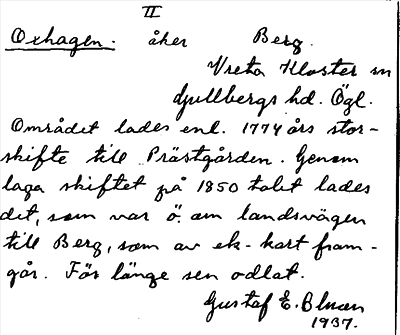 II
Oxhagen. åker Berg.
Vreta Kloster sn
Gullbergs hd. Ögl.
Området lades enl. 1774 års stor-
skifte till Prästgården. Genom
laga skiftet på 1850 talet lades
det, som var ö. om landsvägen
till Berg, som av ek-kart fram-
går. För länge sen odlat.
Gustaf E. Blmen
1937.